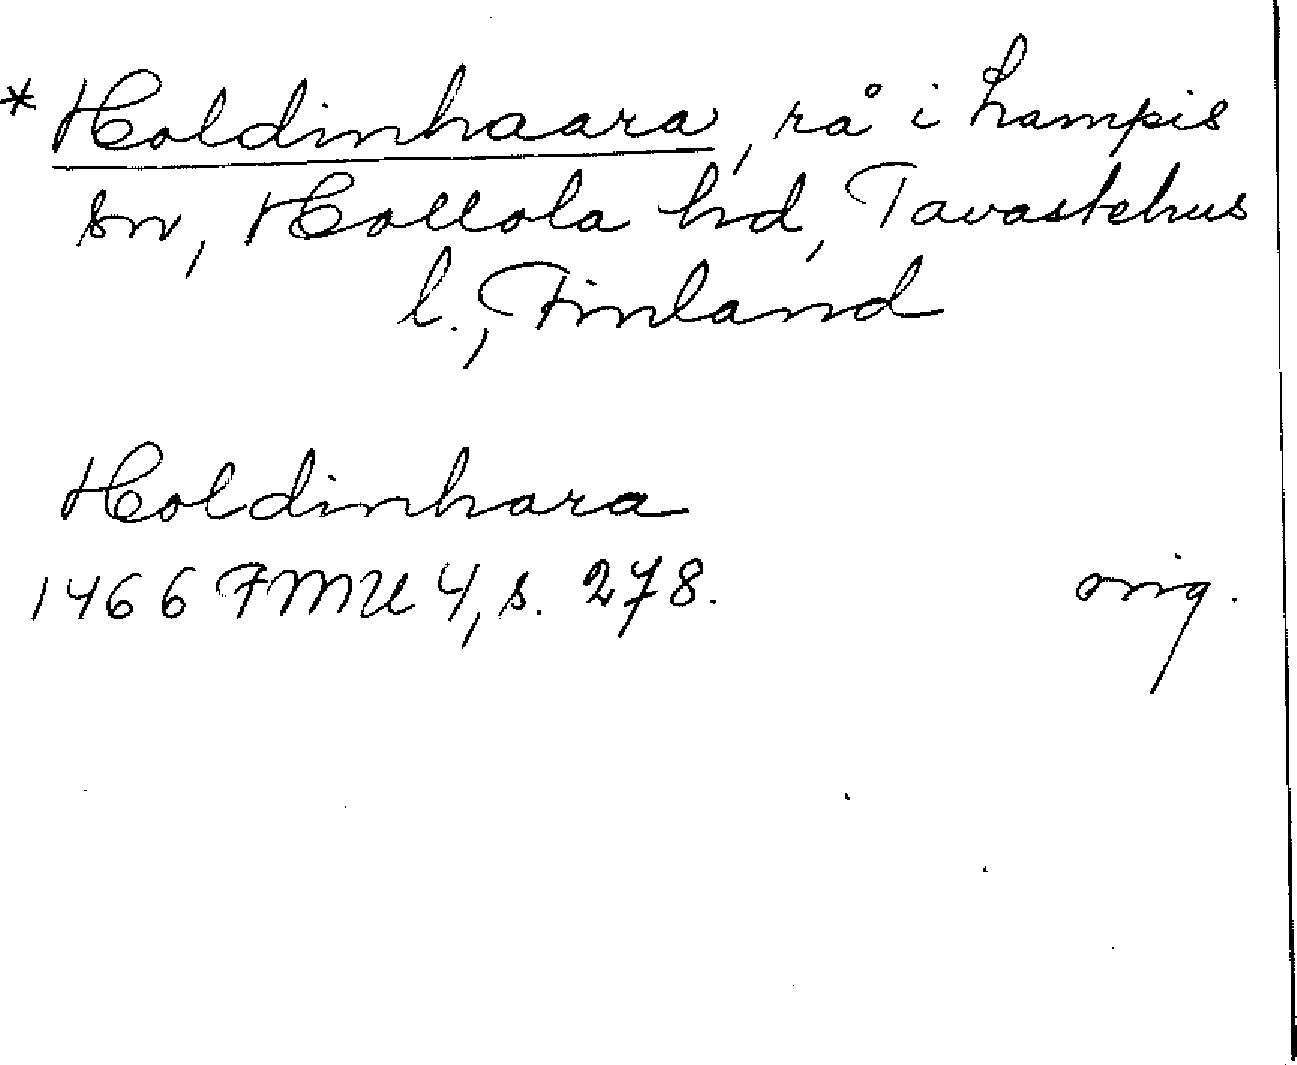 * Holdinhaara, rå i Lampis
sn, Hollola hd, Tavastehus
l., Finland
Holdinhara
1466 FMU 4, s. 278. orig.